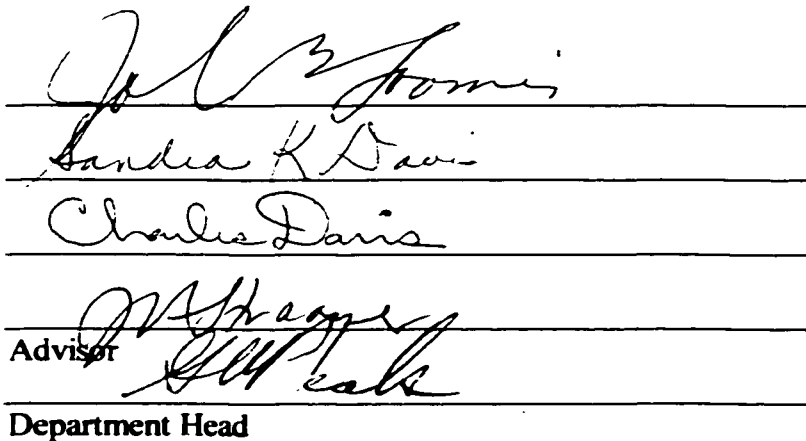 John B Loomis
Sandra K Davis
Charles Davis
Advisor
Department Head